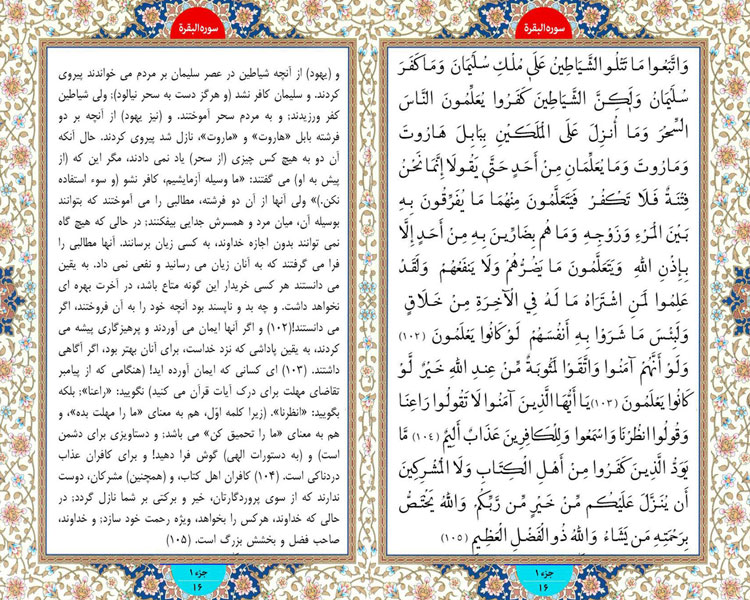 سوره البقرة
وَاتَّبَعُوا مَا تَتْلُو الشَّيَاطِينُ عَلَىٰ مُلْكِ سُلَيْمَانَ وَمَا كَفَرَ
سُلَيْمَانُ وَلَٰكِنَّ الشَّيَاطِينَ كَفَرُوا يُعَلِّمُونَ النَّاسَ
السِّحْرَ وَمَا أُنزِلَ عَلَى الْمَلَكَيْنِ بِبَابِلَ هَارُوتَ
وَمَارُوتَ وَمَا يُعَلِّمَانِ مِنْ أَحَدٍ حَتَّىٰ يَقُولَا إِنَّمَا نَحْنُ
فِتْنَةٌ فَلَا تَكْفُرْ فَيَتَعَلَّمُونَ مِنْهُمَا مَا يُفَرِّقُونَ بِهِ
بَيْنَ الْمَرْءِ وَزَوْجِهِ وَمَا هُم بِضَارِّينَ بِهِ مِنْ أَحَدٍ إِلَّا
بِإِذْنِ اللَّهِ وَيَتَعَلَّمُونَ مَا يَضُرُّهُمْ وَلَا يَنفَعُهُمْ وَلَقَدْ
عَلِمُوا لَمَنِ اشْتَرَاهُ مَا لَهُ فِي الْآخِرَةِ مِنْ خَلَاقٍ
وَلَبِئْسَ مَا شَرَوْا بِهِ أَنفُسَهُمْ لَوْ كَانُوا يَعْلَمُونَ (۱۰۲)
وَلَوْ أَنَّهُمْ آمَنُوا وَاتَّقَوْا لَمَثُوبَةٌ مِّنْ عِندِ اللَّهِ خَيْرٌ لَّوْ
كَانُوا يَعْلَمُونَ (۱۰۳) يَا أَيُّهَا الَّذِينَ آمَنُوا لَا تَقُولُوا رَاعِنَا
وَقُولُوا انظُرْنَا وَاسْمَعُوا وَلِلْكَافِرِينَ عَذَابٌ أَلِيمٌ (۱۰۴) مَّا
يَوَدُّ الَّذِينَ كَفَرُوا مِنْ أَهْلِ الْكِتَابِ وَلَا الْمُشْرِكِينَ
أَن يُنَزَّلَ عَلَيْكُم مِّنْ خَيْرٍ مِّن رَّبِّكُمْ وَاللَّهُ يَخْتَصُّ
بِرَحْمَتِهِ مَن يَشَاءُ وَاللَّهُ ذُو الْفَضْلِ الْعَظِيمِ (۱۰۵)
جزء ۱
۱۶
سوره البقرة
و (یهود) از آنچه شیاطین در عصر سلیمان بر مردم می خواندند پیروی
کردند. و سلیمان کافر نشد (و هرگز دست به سحر نیالود)؛ ولی شیاطین
کفر ورزیدند؛ و به مردم سحر آموختند. و (نیز یهود) از آنچه بر دو
فرشته بابل «هاروت» و «ماروت»، نازل شد پیروی کردند. حال آنکه
آن دو به هیچ کس چیزی (از سحر) یاد نمی دادند، مگر این که (از
پیش به او) می گفتند: «ما وسیله آزمایشیم، کافر نشو (و سوء استفاده
نکن.)» ولی آنها از آن دو فرشته، مطالبی را می آموختند که بتوانند
بوسیله آن، میان مرد و همسرش جدایی بیفکنند; در حالی که هیچ گاه
نمی توانند بدون اجازه خداوند، به کسی زیان برسانند. آنها مطالبی را
فرا می گرفتند که به آنان زیان می رسانید و نفعی نمی داد. به یقین
می دانستند هر کسی خریدار این گونه متاع باشد، در آخرت بهره ای
نخواهد داشت. و چه بد و ناپسند بود آنچه خود را به آن فروختند، اگر
می دانستند!(۱۰۲) و اگر آنها ایمان می آوردند و پرهیزگاری پیشه می
کردند، به یقین پاداشی که نزد خداست، برای آنان بهتر بود، اگر آگاهی
داشتند. (۱۰۳) ای کسانی که ایمان آورده اید! (هنگامی که از پیامبر
تقاضای مهلت برای درک آیات قرآن می کنید) نگویید: «راعنا»; بلکه
بگویید: «انظرنا». (زیرا کلمه اوّل، هم به معنای «ما را مهلت بده»، و
هم به معنای «ما را تحمیق کن» می باشد; و دستاویزی برای دشمن
است) و (به دستورات الهی) گوش فرا دهید! و برای کافران عذاب
دردناکی است. (۱۰۴) کافران اهل کتاب، و (همچنین) مشرکان، دوست
ندارند که از سوی پروردگارتان، خیر و برکتی بر شما نازل گردد; در
حالی که خداوند، هرکس را بخواهد، ویژه رحمت خود سازد; و خداوند،
صاحب فضل و بخشش بزرگ است. (۱۰۵)
جزء ۱
۱۶